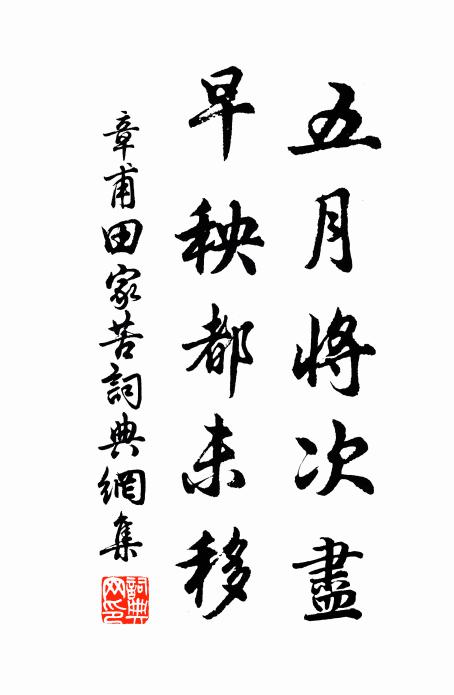 五月將次盡
早秧都未移
章甫田家苦詞典網集
詞典網印